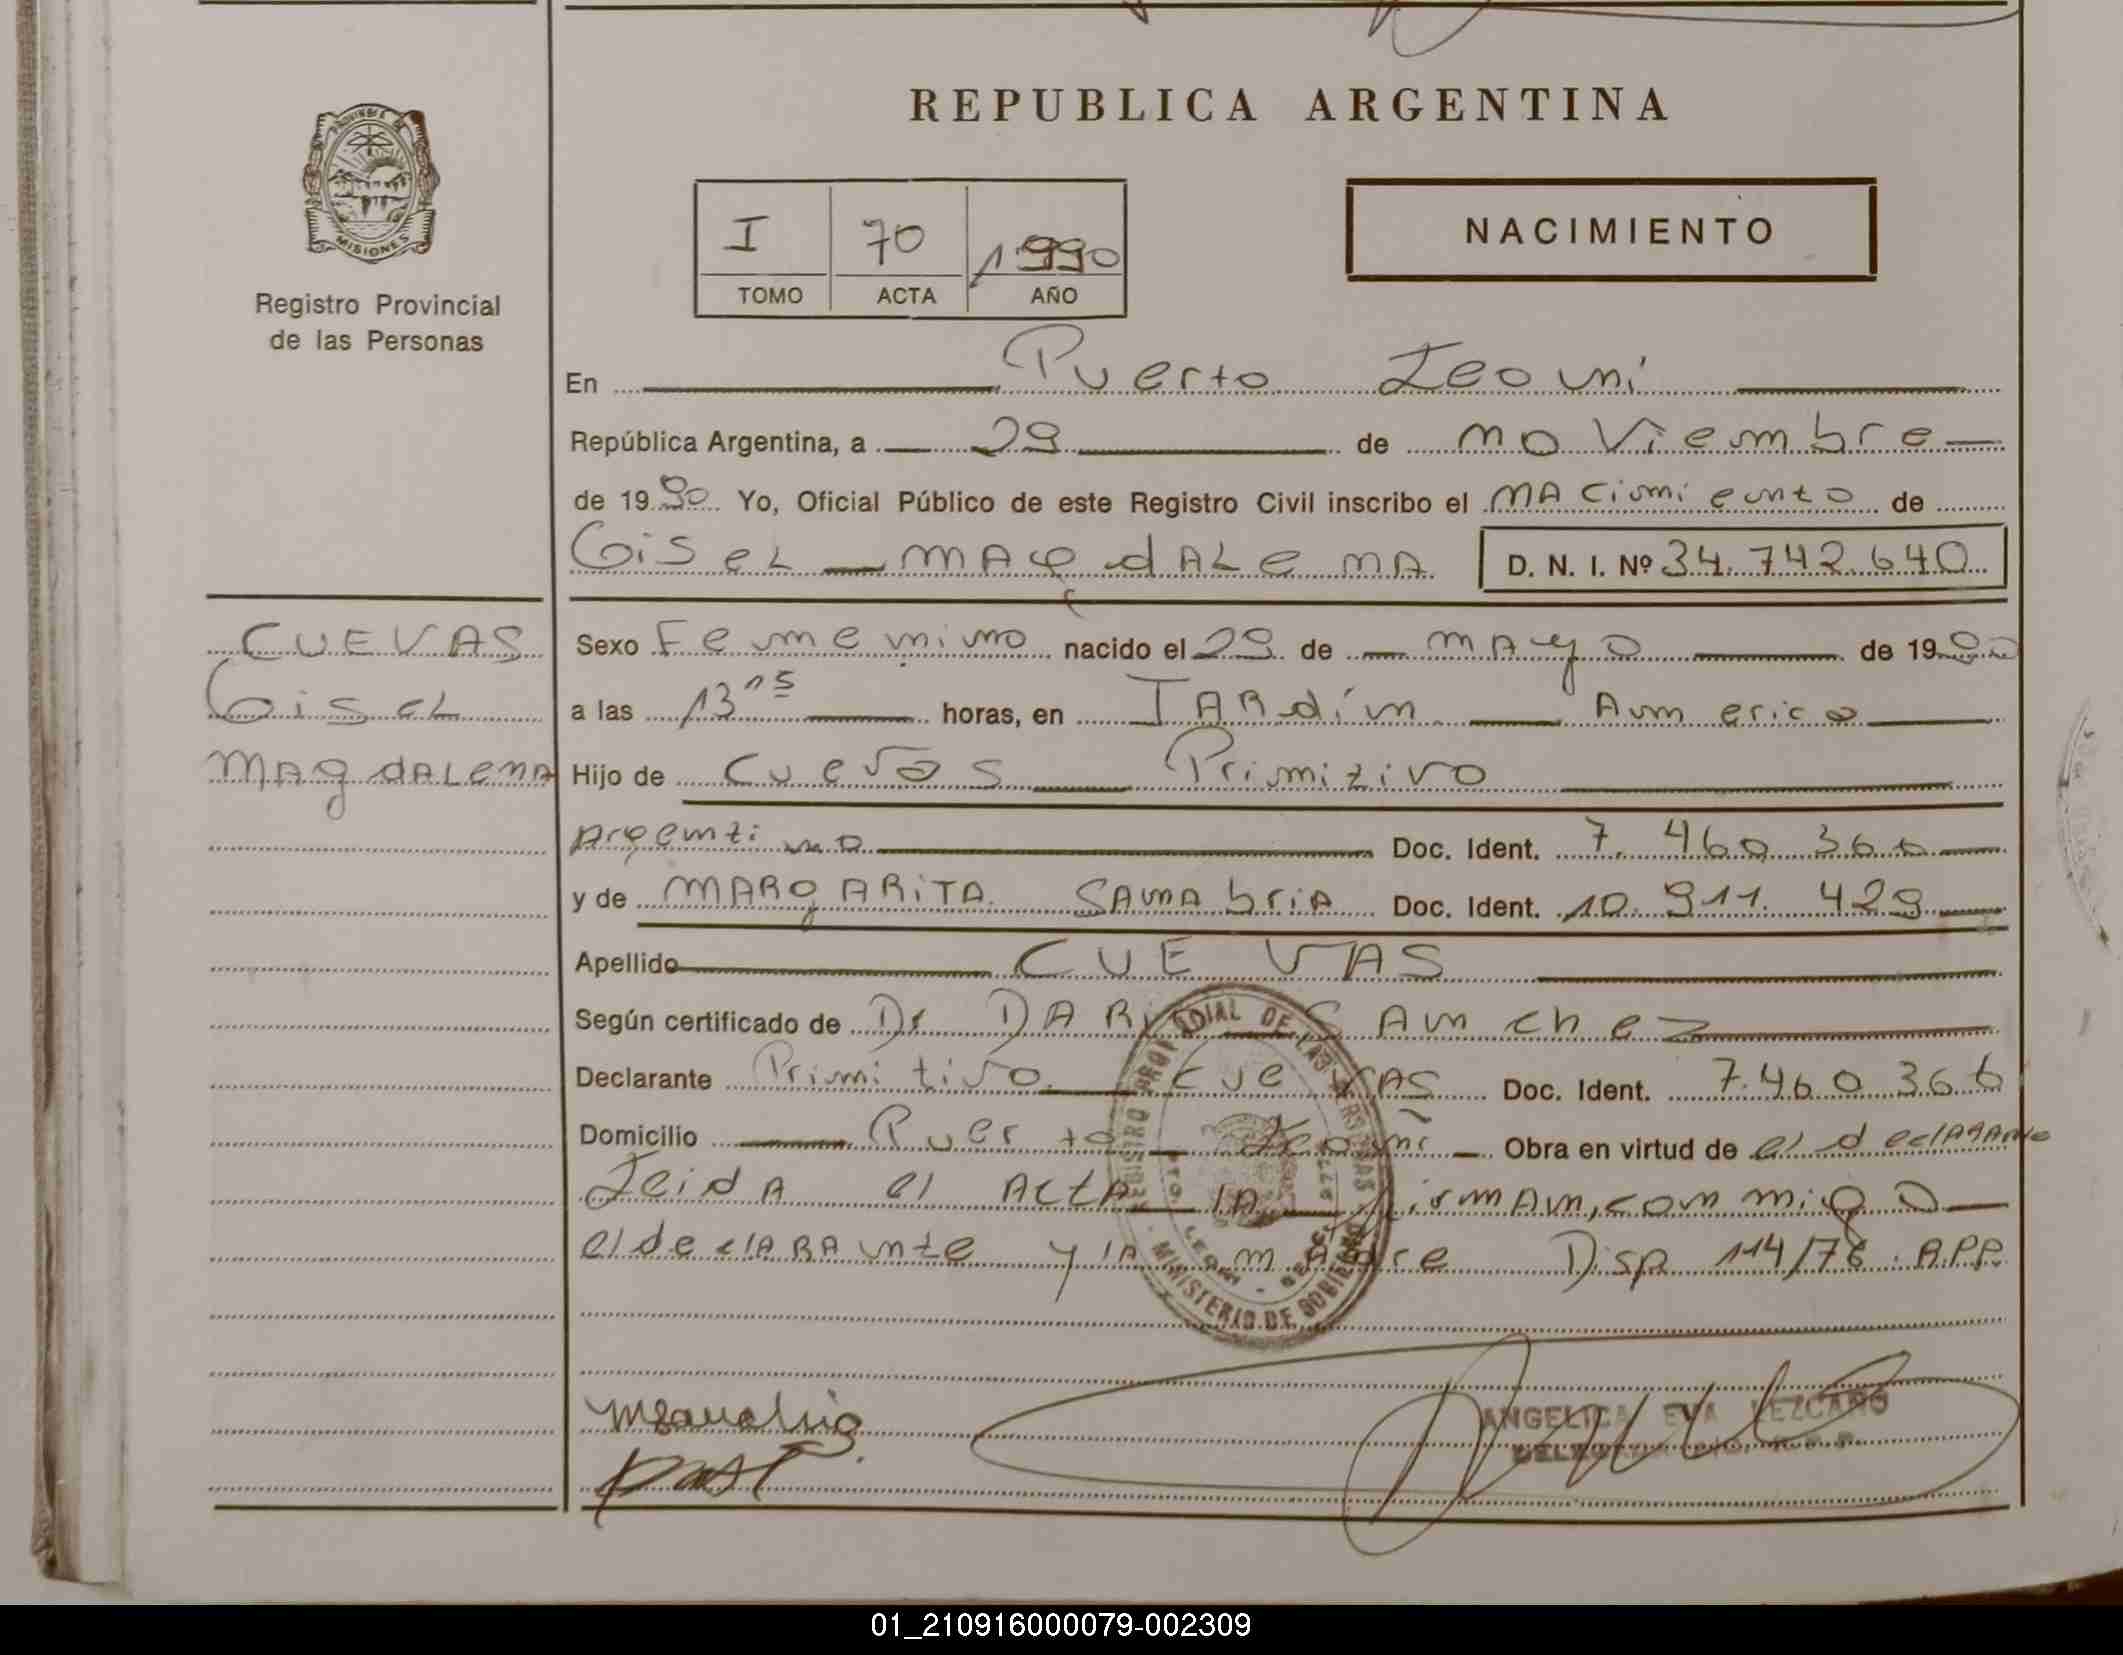 REPUBLICA ARGENTINA
PROVINCIA DE
MISIONES
Registro Provincial
de las Personas
I 70 1990
TOMO ACTA AÑO
NACIMIENTO
En Puerto Leoni
República Argentina, a 29 de noviembre
de 1990 Yo, Oficial Público de este Registro Civil inscribo el nacimiento de
Gisel - MAgdALenA D. N. I. Nº 34.742.640
CUEVAS
Gisel
MAgdALenA
Sexo Femenino nacido el 29 de mAyo de 1990
a las 13 15 horas, en JARdín America
Hijo de Cuevas Primitivo
Argentino Doc. Ident. 7.460.366
y de MARgARiTA SAnAbriA Doc. Ident. 10.911.429
Apellido CUEVAS
Según certificado de Dr DARiO SAnchez
Declarante Primitivo CueVAS Doc. Ident. 7.460.366
Domicilio Puerto Leoni Obra en virtud de el declarante
Leida el ActA lA firmAn, conmigo
el declARAnte y lA mAdre Disp 114/78 R.P.P.
REGISTRO PROVINCIAL DE LAS PERSONAS
MINISTERIO DE GOBIERNO
ANGELICA EVA LEZCANO
01_210916000079-002309